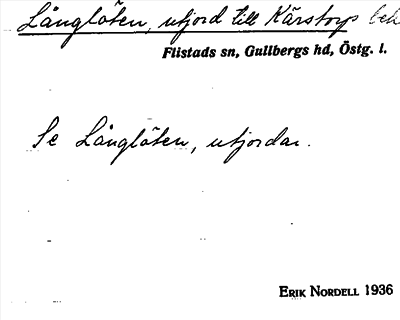 Långlöten, utjord till Kärstorps
Flistads sn, Gullbergs hd, Östg. l.
Se Långlöten, utjordar.
ERIK NORDELL 1936